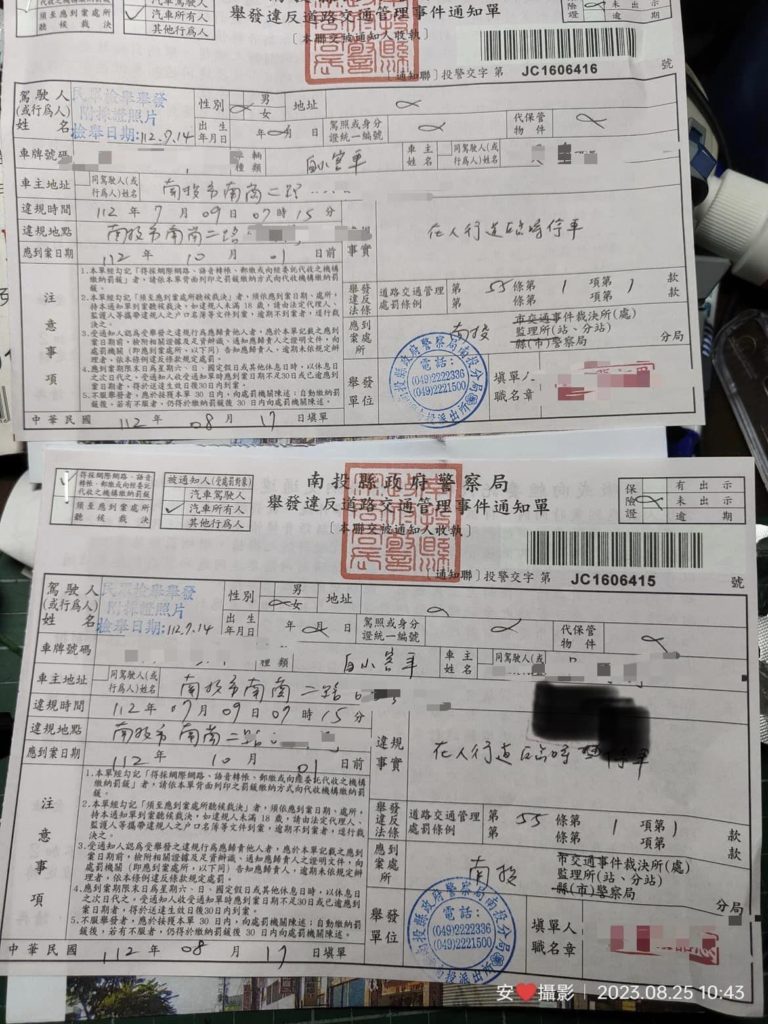 須至應到案處所
聽候裁決
汽車所有人
其他行為人
舉發違反道路交通管理事件通知單
〔本聯交被通知人收執〕
保險證
逾期
〔通知聯〕投警交字 第 JC1606416 號
駕駛人
(或行為人)
姓名
民眾檢舉舉發
附採證照片
檢舉日期:112.7.14
性別 男 女 地址
出生年月日 年 月 日
駕照或身分證統一編號
代保管物件
車牌號碼
車輛種類 自小客車
車主姓名 同駕駛人(或行為人)姓名
車主地址 同駕駛人(或行為人)姓名 南投市南崗二路
違規時間 112 年 7 月 09 日 07 時 15 分
違規地點 南投市南崗二路
應到案日期 112 年 10 月 01 日前
事實 在人行道臨時停車
舉發違反法條 道路交通管理處罰條例 第 55 條第 1 項第 1 款
款
應到案處所 南投 市交通事件裁決所(處)
監理所(站、分站)
縣(市)警察局 分局
注意事項
1.本單經勾記「得採網際網路、語音轉帳、郵繳或向經委託代收之機構
繳納罰鍰」者,請依本單背面列印之罰鍰繳納方式向代收之機構繳納罰
鍰。
2.本單經勾記「須至應到案處所聽候裁決」者,須依應到案日期、處所,
持本通知單到案聽候裁決,如違規人未滿 18 歲,請由法定代理人、
監護人等攜帶違規人之戶口名簿等文件到案,逾期不到案者,逕行裁
決之。
3.受通知人認為受舉發之違規行為應歸責他人者,應於本單記載之應到
案日期前,檢附相關證據及足資辨識、通知應歸責人之證明文件,向
處罰機關(即應到案處所,以下同)告知應歸責人,逾期未依規定辦
理者,依本條例違反條款規定處罰。
4.應到案日期限末日為星期六、日、國定假日或其他休息日時,以休息日
之次日代之。受通知人收受通知單時應到案日期不足30日或已逾應到
案日期者,得於送達生效日後30日內到案。
5.不服舉發者,應於接獲本單 30 日內,向處罰機關陳述;自動繳納罰
鍰後,若有不服,仍得於繳納罰鍰後 30 日內向處罰機關陳述。
舉發單位
南投縣政府警察局南投分局
電話:
(049)2222336
(049)2221500
派出所
填單人
職名章
中華民國 112 年 08 月 17 日填單
得採網際網路、語音
轉帳、郵繳或向經委託
代收之機構繳納罰鍰
須至應到案處所
聽候裁決
被通知人(受處罰對象)
汽車駕駛人
汽車所有人
其他行為人
南投縣政府警察局
舉發違反道路交通管理事件通知單
〔本聯交被通知人收執〕
保險證 有出示
未出示
逾期
〔通知聯〕投警交字 第 JC1606415 號
駕駛人
(或行為人)
姓名
民眾檢舉舉發
附採證照片
檢舉日期:112.7.14
性別 男 女 地址
出生年月日 年 月 日
駕照或身分證統一編號
代保管物件
車牌號碼
種類 自小客車
車主姓名 同駕駛人(或
車主地址 同駕駛人(或行為人)姓名 南投市南崗二路
違規時間 112 年 07 月 09 日 07 時 15 分
違規地點 南投市南崗二路
應到案日期 112 年 10 月 01 日前
違規事實 在人行道臨時停車
舉發違反法條 道路交通管理處罰條例 第 55 條第 1 項第 1 款
第 條第 項第 款
應到案處所 南投 市交通事件裁決所(處)
監理所(站、分站)
縣(市)警察局 分局
注意事項
1.本單經勾記「得採網際網路、語音轉帳、郵繳或向經委託代收之機構
繳納罰鍰」者,請依本單背面列印之罰鍰繳納方式向代收之機構繳納罰
鍰。
2.本單經勾記「須至應到案處所聽候裁決」者,須依應到案日期、處所,
持本通知單到案聽候裁決,如違規人未滿 18 歲,請由法定代理人、
監護人等攜帶違規人之戶口名簿等文件到案,逾期不到案者,逕行裁
決之。
3.受通知人認為受舉發之違規行為應歸責他人者,應於本單記載之應到
案日期前,檢附相關證據及足資辨識、通知應歸責人之證明文件,向
處罰機關(即應到案處所,以下同)告知應歸責人,逾期未依規定辦
理者,依本條例違反條款規定處罰。
4.應到案期限末日為星期六、日、國定假日或其他休息日時,以休息日
之次日代之。受通知人收受通知單時應到案日期不足30日或已逾應到
案日期者,得於送達生效日後30日內到案。
5.不服舉發者,應於接獲本單 30 日內,向處罰機關陳述;自動繳納罰
鍰後,若有不服,仍得於繳納罰鍰後 30 日內向處罰機關陳述。
舉發單位
南投縣政府警察局南投分局
電話:
(049)2222336
(049)2221500
派出所
填單人
職名章
中華民國 112 年 08 月 17 日填單
安❤攝影 | 2023.08.25 10:43